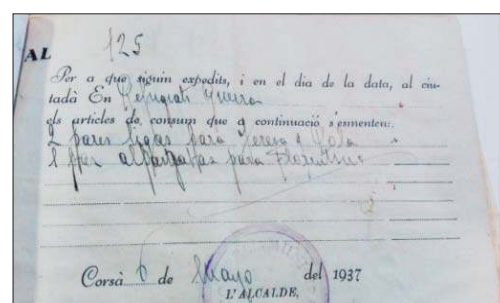 125
AL
Per a que siguin expedits, i en el dia de la data, al ciu-
tadà En Refugiats Guerra
els articles de consum que a continuació s'ennenten:
2 pares ligas para Teresa y Lola
1 par alpargatas para Florentino
Corsà 6 de Mayo del 1937
L'ALCALDE,